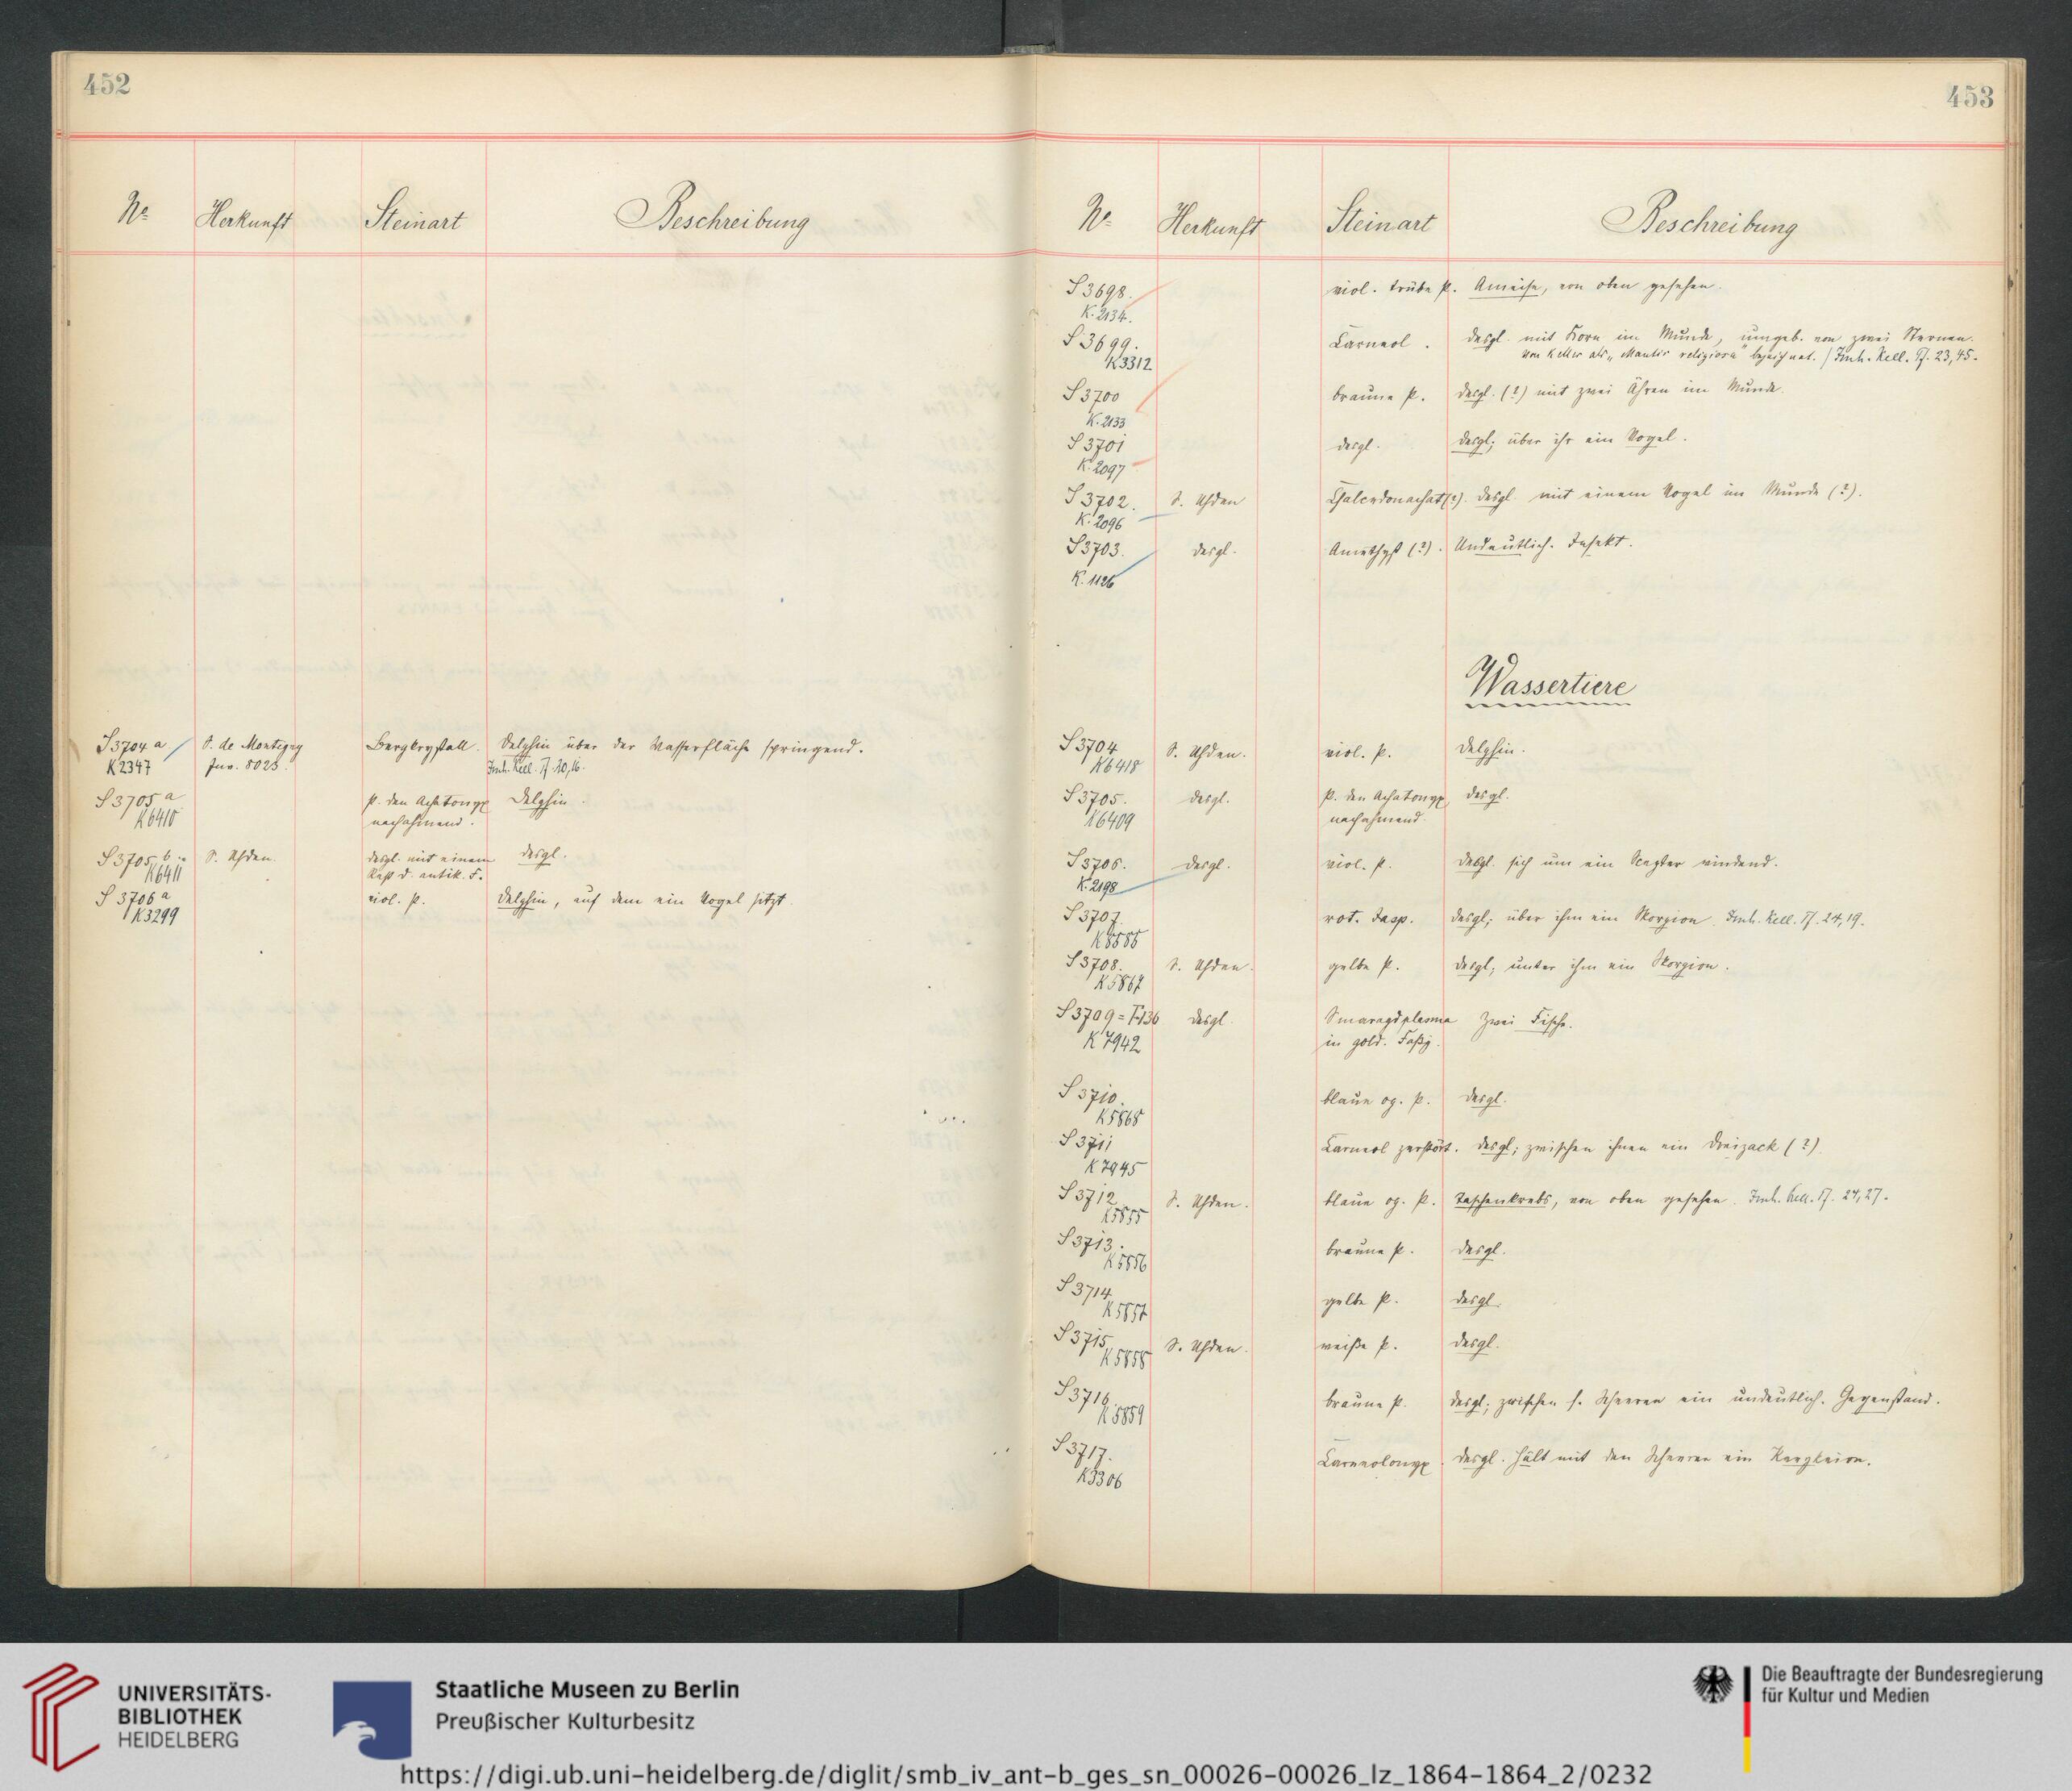 452
No Herkunft Steinart Beschreibung
S3704 a. S. de Montigny Bergkrystall. Delphin über der Wasserfläche springend.
K2347 Inv. 8023. Imh. Kell. Tf. 20,16.
S3705 a p. den Achatonyx Delphin.
K6410 nachahmend.
S3705 b. S. Uhden. desgl. mit einem desgl.
K6411 Rest d. antik. F.
S 3706 a viol. p. Delphin, auf dem ein Vogel sitzt.
K3299
453
No Herkunft Steinart Beschreibung
S3698. viol. trübe p. Ameise, von oben gesehen.
K.2134.
S3699. Carneol. desgl. mit Korn im Munde, umgeb. von zwei Sternen.
K3312 von Keller als „Mantis religiosa" bezeichnet. / Imh. Kell. Tf. 23,45.
S3700 braune p. desgl. (?) mit zwei Ähren im Munde.
K.2133
S3701 desgl. desgl; über ihr ein Vogel.
K.2097
S3702. S. Uhden Chalcedonachat(?). desgl. mit einem Vogel im Munde (?).
K.2096
S3703. desgl. Amethyst (?). Undeutlich. Insekt.
K.1126
Wassertiere
S3704 S. Uhden. viol. p. Delphin.
K6418
S3705. desgl. p. den Achatonyx desgl.
K6409 nachahmend.
S3706. desgl. viol. p. desgl. sich um ein Scepter windend.
K.2198
S3707. rot. Jasp. desgl; über ihm ein Skorpion. Imh. Kell. Tf. 24,19.
K8585
S3708. S. Uhden. gelbe p. desgl; unter ihm ein Skorpion.
K5867
S3709 = T136 desgl. Smaragdplasma Zwei Fische.
K7942 in gold. Faßg.
S3710. blaue og. p. desgl.
K5868
S3711 Carneol zerstört. desgl; zwischen ihnen ein Dreizack (?)
K7945
S3712 S. Uhden. blaue og. p. Taschenkrebs, von oben gesehen. Imh. Kell. Tf. 24,27.
K5855
S3713. braune p. desgl.
K5856
S3714 gelbe p. desgl.
K5857
S3715 S. Uhden. weiße p. desgl.
K5858
S3716. braune p. desgl; zwischen s. Scheeren ein undeutlich. Gegenstand.
K5859
S3717. Carneolonyx. desgl. hält mit den Scheeren ein Kerykeion.
K3306
UNIVERSITÄTS-
BIBLIOTHEK
HEIDELBERG
Staatliche Museen zu Berlin
Preußischer Kulturbesitz
Die Beauftragte der Bundesregierung
für Kultur und Medien
https://digi.ub.uni-heidelberg.de/diglit/smb_iv_ant-b_ges_sn_00026-00026_lz_1864-1864_2/0232